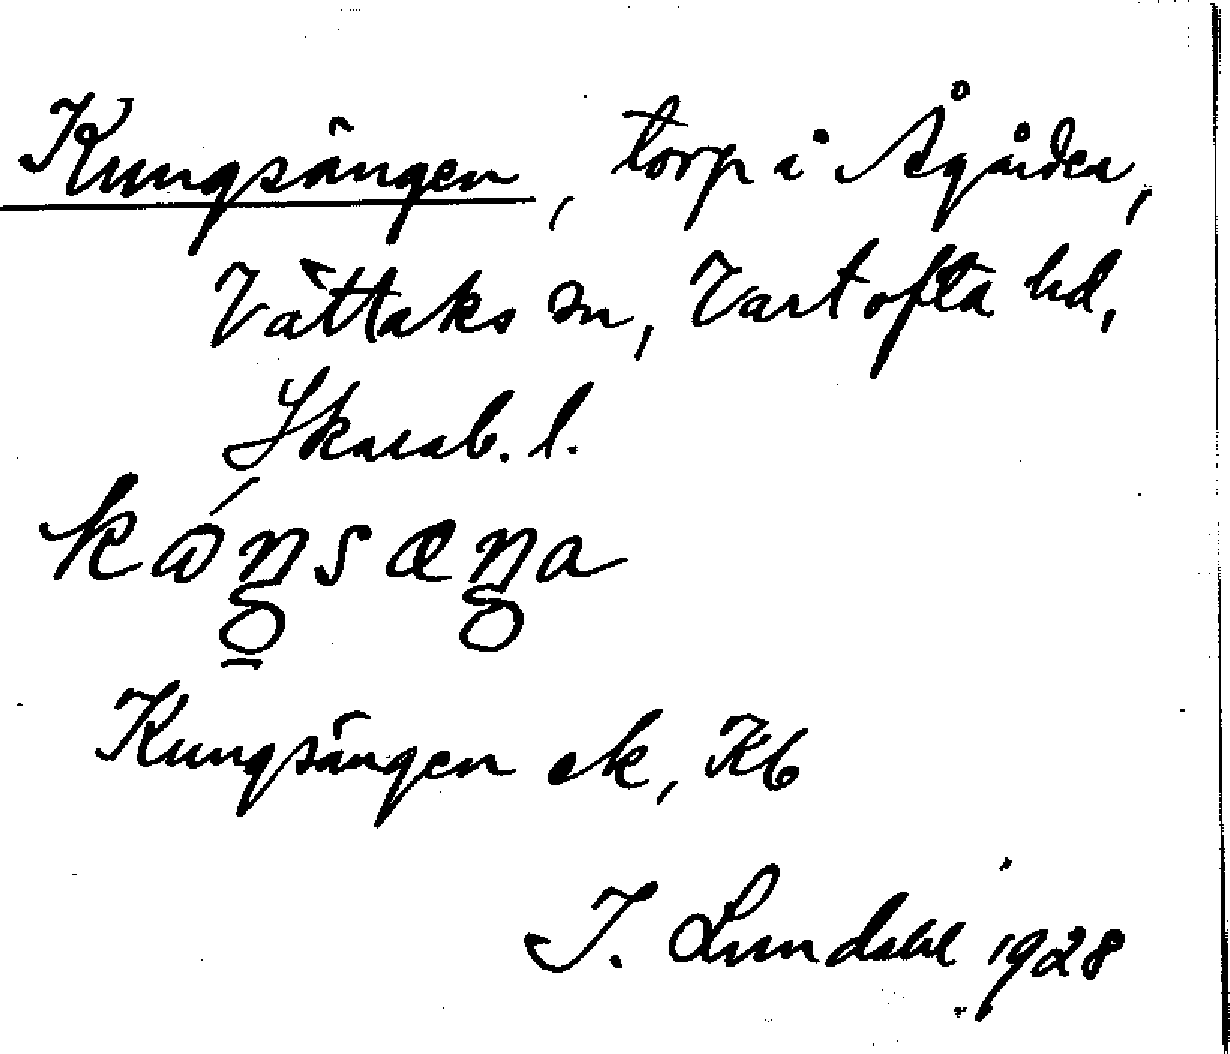 Kungsängen, torp i Ågården,
Vättaks sn, Vartofta hd,
Skarab. l.
Kungsängen ek, Kb
I. Lundahl 1928